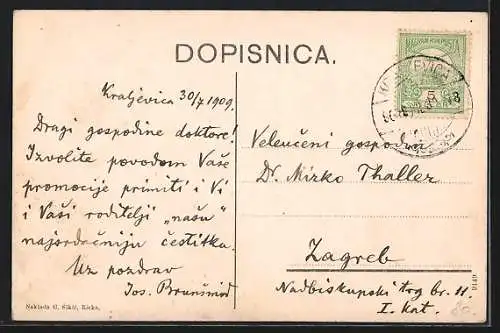 DOPISNICA.
Kraljevica 30/7 1909.
Dragi gospodine doktore!
Izvolite povodom Vaše
promocije primiti i Vi
i Vaši roditelji „našu"
najsrdačniju čestitku.
Uz pozdrav
Jos. Brunšmid
Velenčeni gospodin
Dr. Mirko Thaller
Zagreb
Nadbiskupski trg br. 11.
I. kat.
Naklada G. Sikić, Rieka.